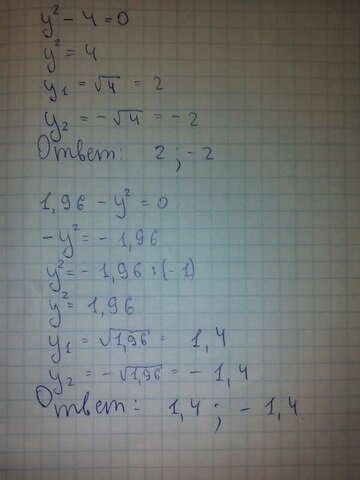 y² - 4 = 0
y² = 4
y₁ = √4 = 2
y₂ = -√4 = -2
Ответ: 2 ; -2
1,96 - y² = 0
-y² = -1,96
y² = -1,96 : (-1)
y² = 1,96
y₁ = √1,96 = 1,4
y₂ = -√1,96 = -1,4
Ответ: 1,4 ; -1,4